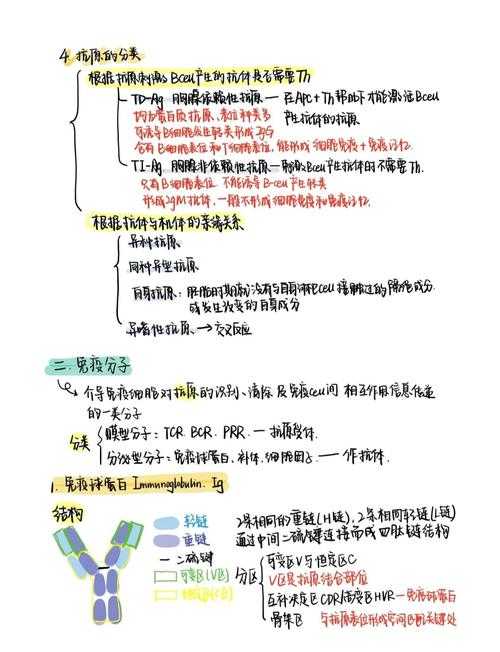 4. 抗原的分类
根据抗原刺激Bcell产生的抗体是否需要Th
TD-Ag 胸腺依赖性抗原 — 在APC+Th帮助下才能激活Bcell
产生抗体的抗原
均为蛋白质抗原、表位种类多
可诱导B细胞发生转类形成IgG
含有B细胞表位和T细胞表位, 能形成细胞免疫+免疫记忆
TI-Ag 胸腺非依赖性抗原 — 刺激Bcell产生抗体时不需要Th.
只有B细胞表位 不能诱导B-cell产生转类
形成IgM抗体, 一般不形成细胞免疫和免疫记忆.
根据抗体与机体的亲缘关系
异种抗原
同种异型抗原
自身抗原: 胚胎时期就没有与自身淋巴cell接触过的隔绝成分
或发生改变的自身成分
异嗜性抗原 → 交叉反应
二. 免疫分子
介导免疫细胞对抗原的识别、清除及免疫cell间 相互作用信息传递
的一类分子
分类
膜型分子: TCR. BCR. PRR. — 抗原受体.
分泌型分子: 免疫球蛋白. 补体. 细胞因子. — 作抗体.
1. 免疫球蛋白 Immunoglobulin. Ig
结构
轻链
重链
二硫键
可变区(V区)
恒定区(C区)
2条相同的重链(H链), 2条相同轻链(L链)
通过中间二硫键连接而成四肽链结构
分区
可变区V与恒定区C
V区是抗原结合部位
互补决定区CDR/高变区HVR — 免疫球蛋白
骨架区 与抗原表位形成空间互配关键处